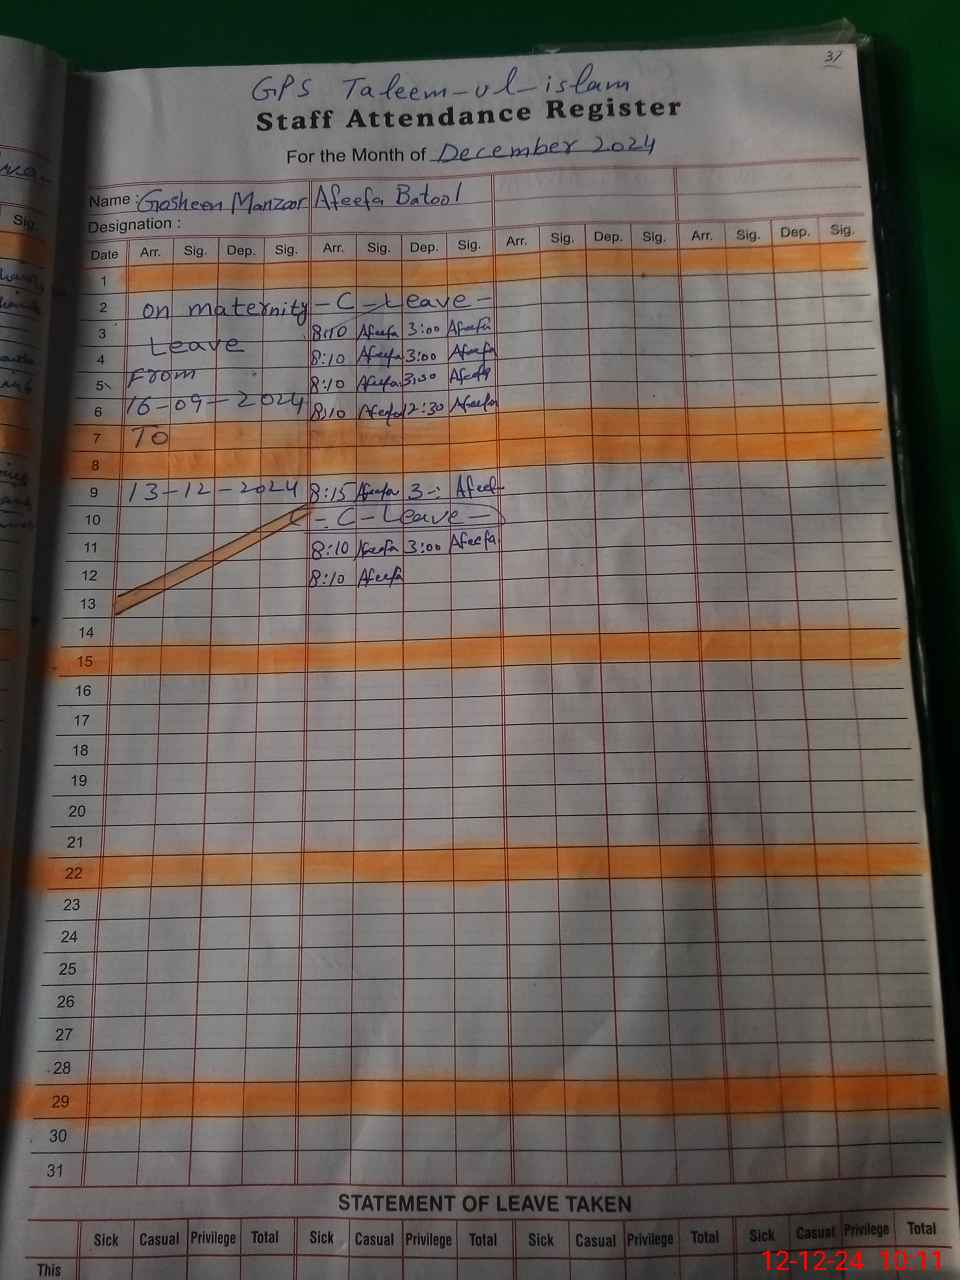 37
GPS Taleem-ul-islam
Staff Attendance Register
For the Month of December 2024
Name : Gosheen Manzoor Afeefa Batool
Designation :
Date Arr. Sig. Dep. Sig. Arr. Sig. Dep. Sig. Arr. Sig. Dep. Sig. Arr. Sig. Dep. Sig.
1
2 on maternity - C - Leave -
3 Leave 8:10 Afeefa 3:00 Afeefa
4 8:10 Afeefa 3:00 Afeefa
5 From 8:10 Afeefa 3:00 Afeefa
6 16-09-2024 8:10 Afeefa 12:30 Afeefa
7 TO
8
9 13-12-2024 8:15 Afeefa 3 -: Afeef
10 - C - Leave -
11 8:10 Afeefa 3:00 Afeefa
12 8:10 Afeefa
13
14
15
16
17
18
19
20
21
22
23
24
25
26
27
28
29
30
31
STATEMENT OF LEAVE TAKEN
Sick Casual Privilege Total Sick Casual Privilege Total Sick Casual Privilege Total Sick Casual Privilege Total
This
12-12-24 10:11